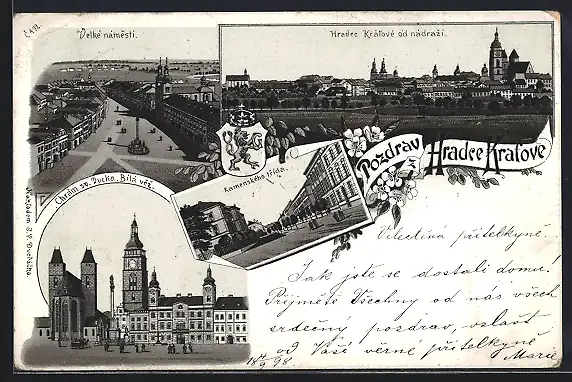 Č 492.
Velké náměstí.
Hradec Králové od nádraží.
Pozdrav
z
Hradce Králové
Komenského třída.
Chrám sv. Ducha. Bílá věž.
Nákladem B. V.
Velectěná přítelkyně
Jak jste se dostali domů!
Prijmete Všechny od nás všech
srdečný pozdrav, zvlášť
od Vaší věrné přítelkyně
Marie
18 14/9 98